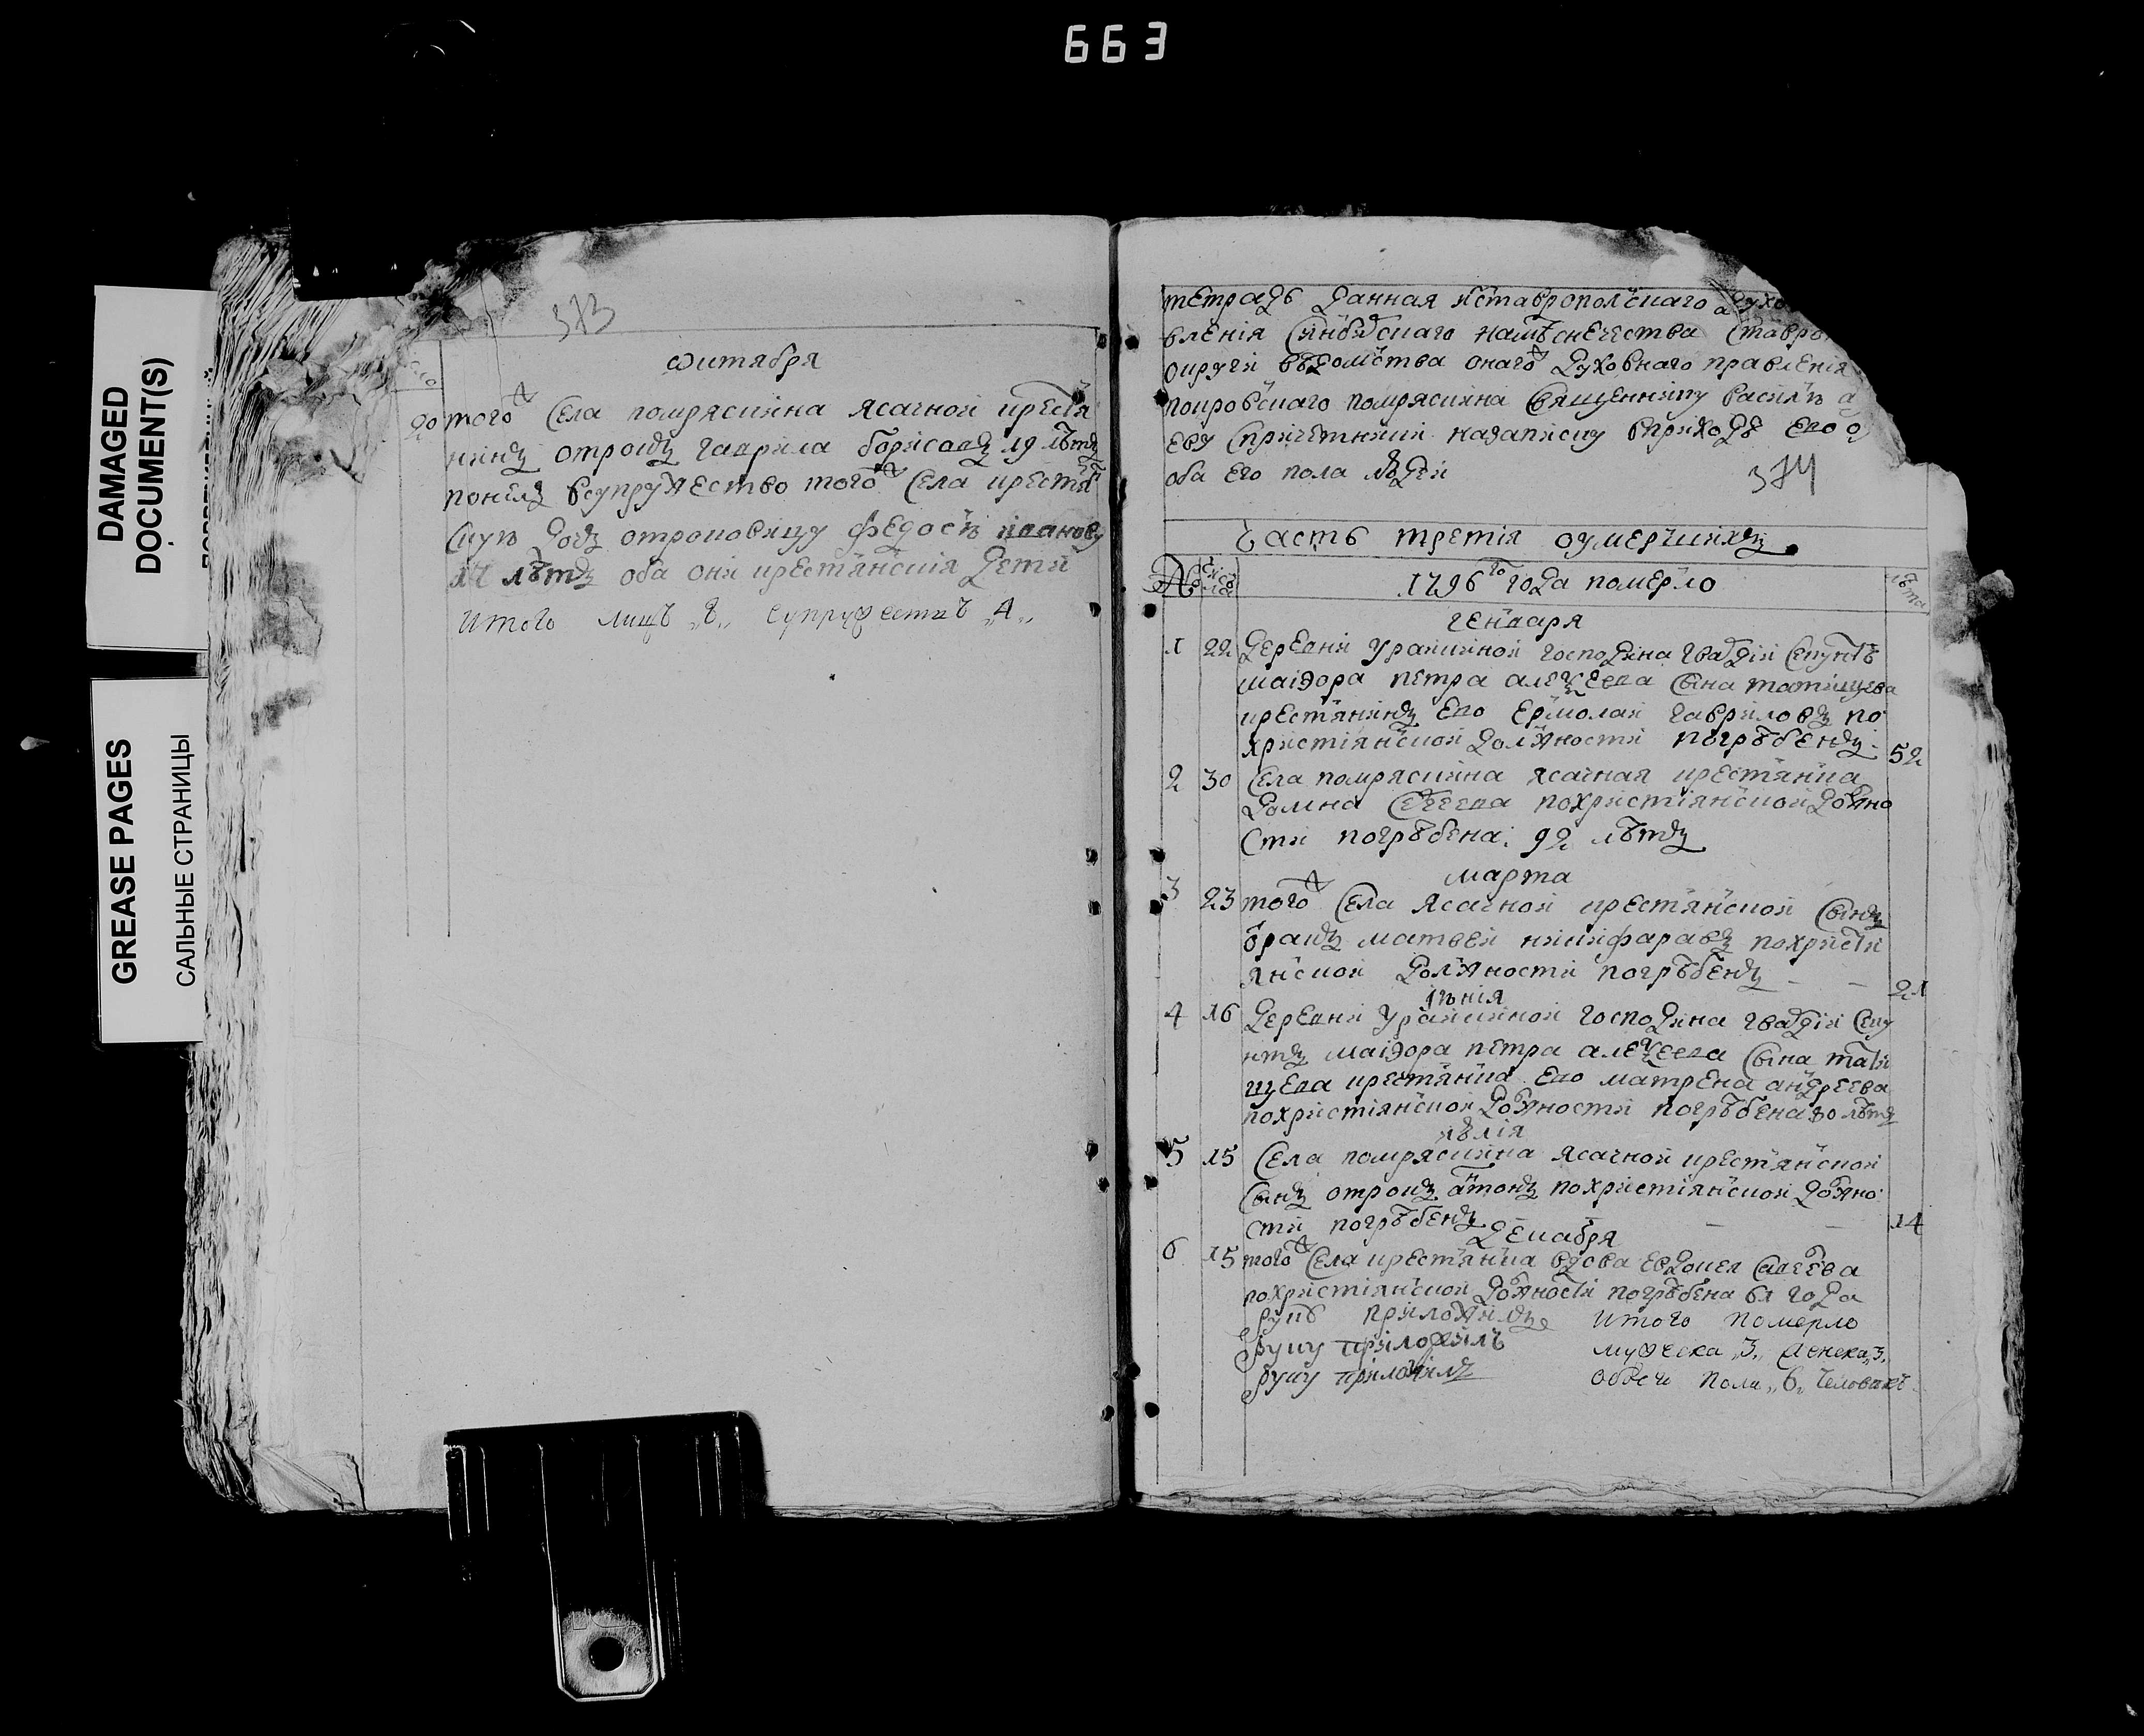 663
DAMAGED
DOCUMENT(S)
GREASE PAGES
САЛЬНЫЕ СТРАНИЦЫ
373
октября
20 тогож села помряскина ясачной крестя
нинъ отрокъ гаврила борисовъ 19 лѣтъ
понялъ всупружество тогож села крестя
скую дочь отроковицу федосю иванову
17 лѣтъ оба они крестянския дети
Итого лицъ „8„ супружествъ „4„
тетрадь данная изставропольскаго духо
вления синбирскаго намѣснечества ставро
округи вѣдомства онагож духовнаго правления
покровскаго помряскина священнику василю
еву спричетники назаписку вприходѣ ево
оба его пола людей
374
Часть третия оумерших
№ число 1796го года померло лѣта
генваря
1 22 деревни урайкиной господина гвардии секунтъ
маиора петра алексеева сына татищева
крестянинъ ево ермолай гавриловъ по
християнской должности погрѣбенъ 52
2 30 села помряскина ясачная крестянка
домна сергеева похристиянской должно
сти погрѣбена 92 лѣтъ
марта
3 23 тогож села ясачной крестянской сынъ
бракъ матвей никифаравъ похристи
янской должности погрѣбенъ — — 21
июния
4 16 деревни урайкиной господина гвардии секу
нтъ маиора петра алексеева сына тати
щева крестянка ево матрена андреева
похристиянской должности погрѣбена 30 лѣтъ
июлия
5 15 села помряскина ясачной крестянской
сынъ отрокъ антонъ похристиянской должно
сти погрѣбенъ — — 14
декабря
6 15 тогож села крестянка вдова евдокея савеева
похристиянской должности погрѣбена 61 года
руку приложилъ Итого померло
руку приложилъ мужеска „3„ женска „3„
руку приложилъ обоего пола „6„ человекъ